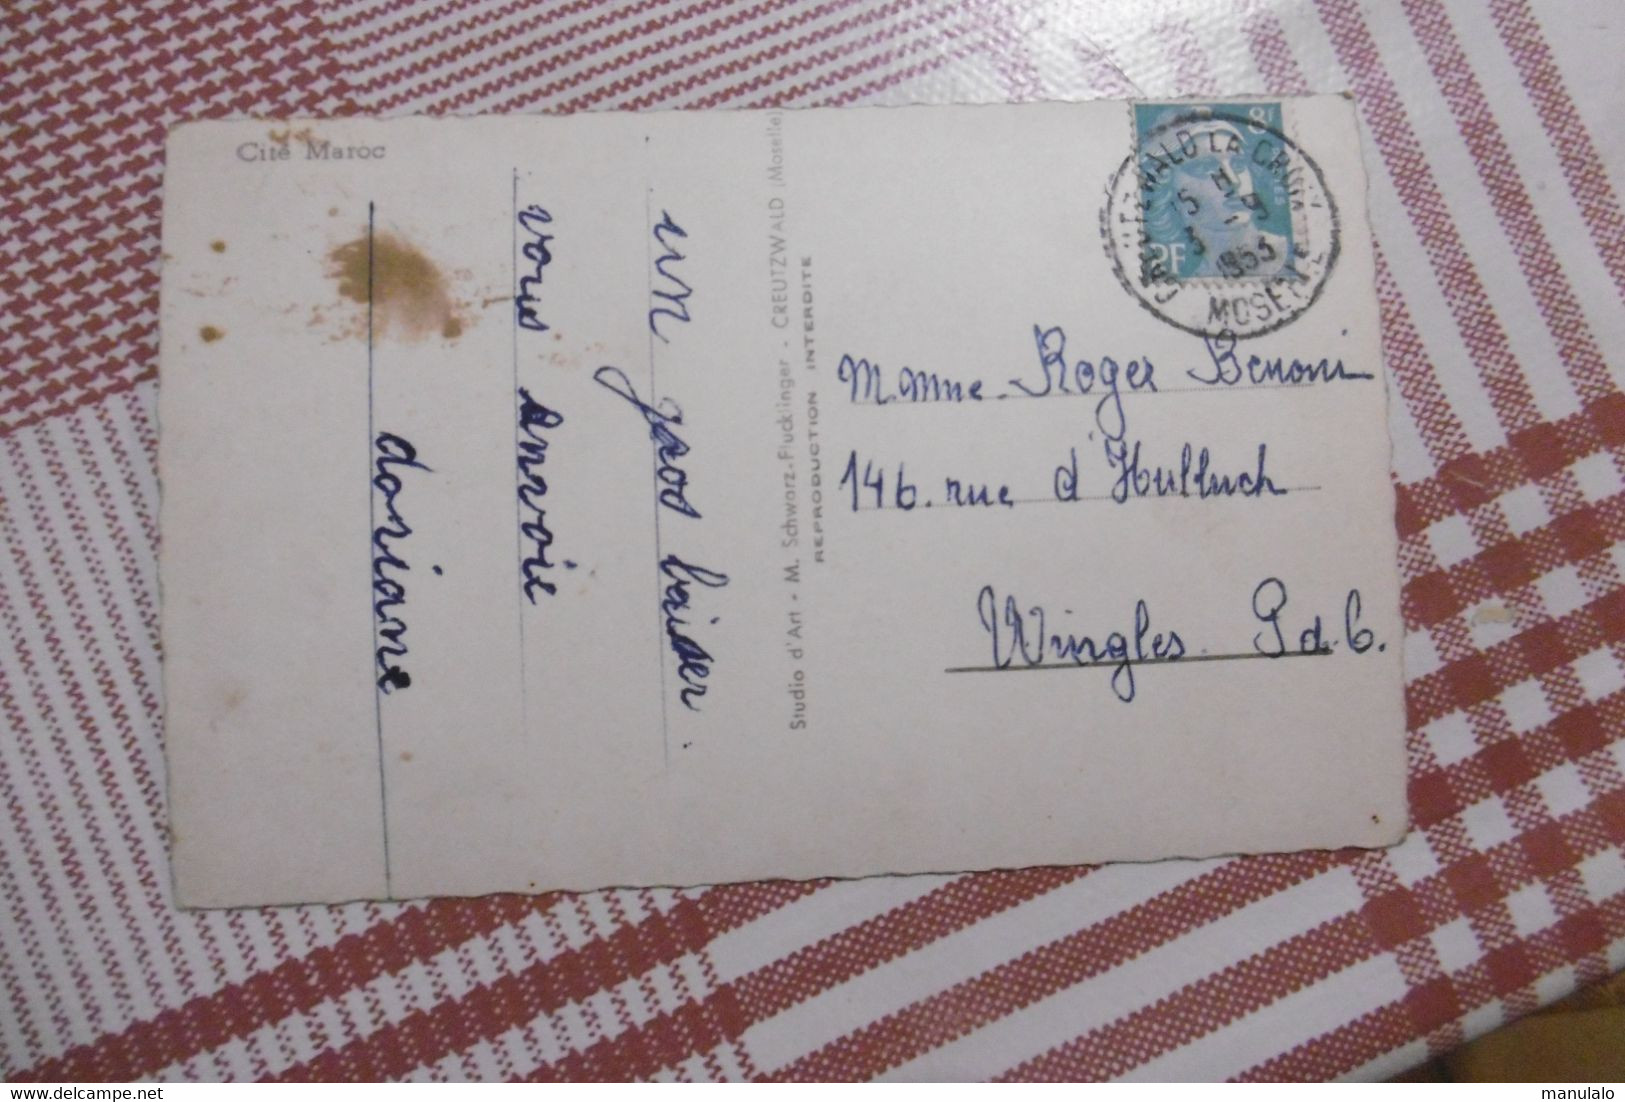 Cité Maroc
dosiane
vous envoie
un gros baiser.
Studio d'Art - M. Schwarz-Flucklinger - CREUTZWALD (Moselle)
REPRODUCTION INTERDITE
8F
RF
CREUTZWALD LA CROIX
1953
MOSELLE
M. Mme. Roger Benoni
146. rue d'Hulluch
Wingles. P.d.C.
manulalo